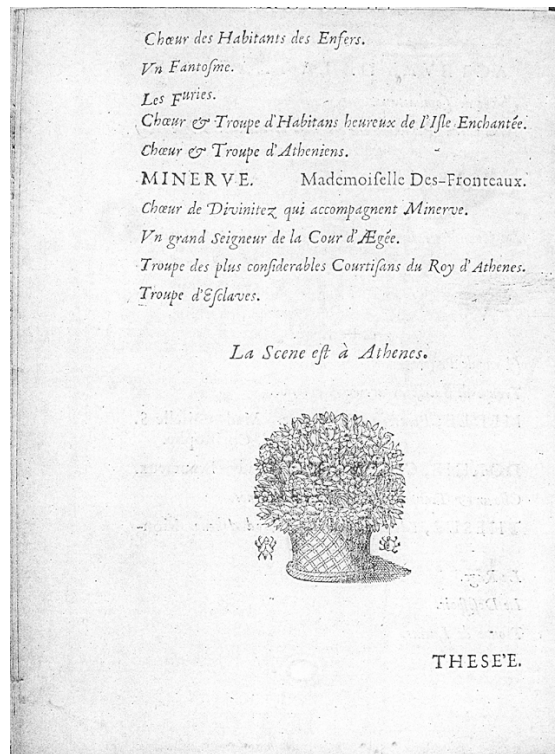 Chœur des Habitants des Enfers.
Vn Fantoſme.
Les Furies.
Chœur & Troupe d'Habitans heureux de l'Iſle Enchantée.
Chœur & Troupe d'Atheniens.
MINERVE. Mademoiſelle Des-Fronteaux.
Chœur de Divinitez qui accompagnent Minerve.
Vn grand Seigneur de la Cour d'Ægée.
Troupe des plus conſiderables Courtiſans du Roy d'Athenes.
Troupe d'Eſclaves.
La Scene eſt à Athenes.
THESE'E.